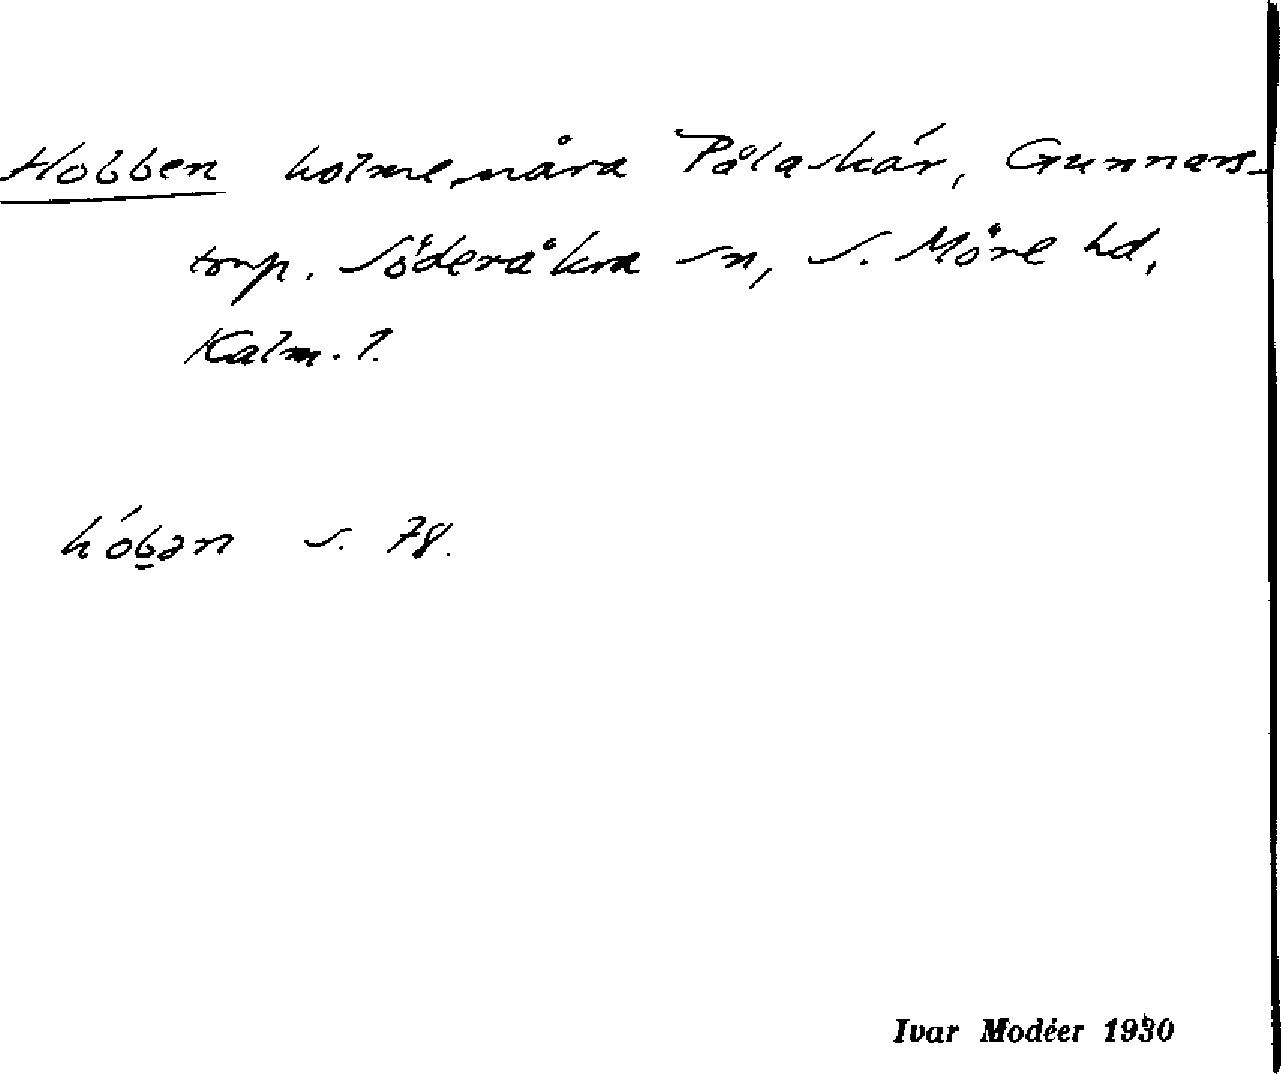 Hobben holme nära Påla skär, Gunnars-
torp. Söderåkra sn, S. Möre hd,
Kalm. l.
hóbən s. 78.
Ivar Modéer 1930